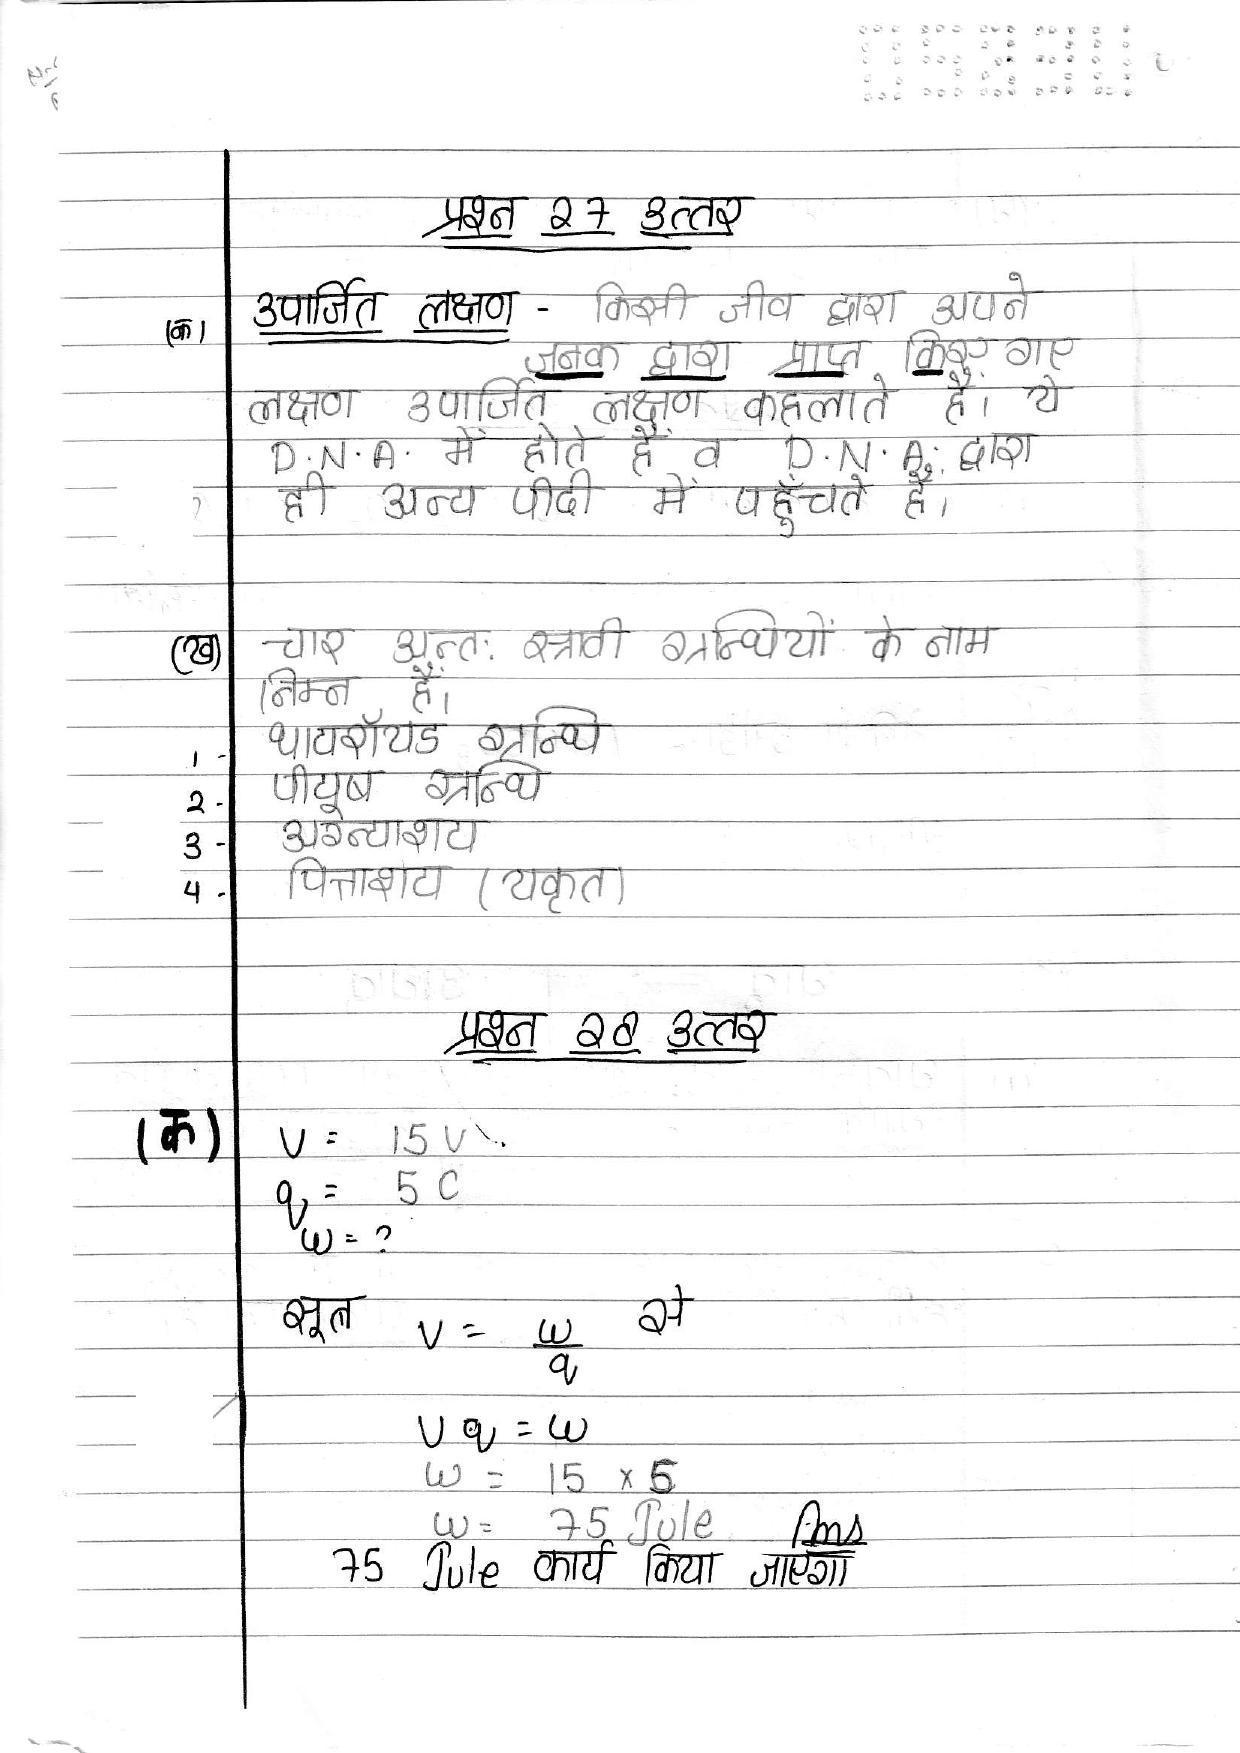 प्रश्न 27 उत्तर
(क) उपार्जित लक्षण - किसी जीव द्वारा अपने
जनक द्वारा प्राप्त किए गए
लक्षण उपार्जित लक्षण कहलाते हैं। ये
D.N.A. में होते हैं व D.N.A. द्वारा
ही अन्य पीढी में पहुँचते हैं।
(ख) चार अन्त: स्त्रावी ग्रन्थियों के नाम
निम्न हैं।
1 - थायरॉयड ग्रन्थि
2 - पीयूष ग्रन्थि
3 - अग्न्याशय
4 - पित्ताशय (यकृत)
प्रश्न 28 उत्तर
(क) V = 15 V
q = 5 C
W = ?
सूत्र V = W/q से
V q = W
W = 15 × 5
W = 75 Jule Ans
75 Jule कार्य किया जाएगा